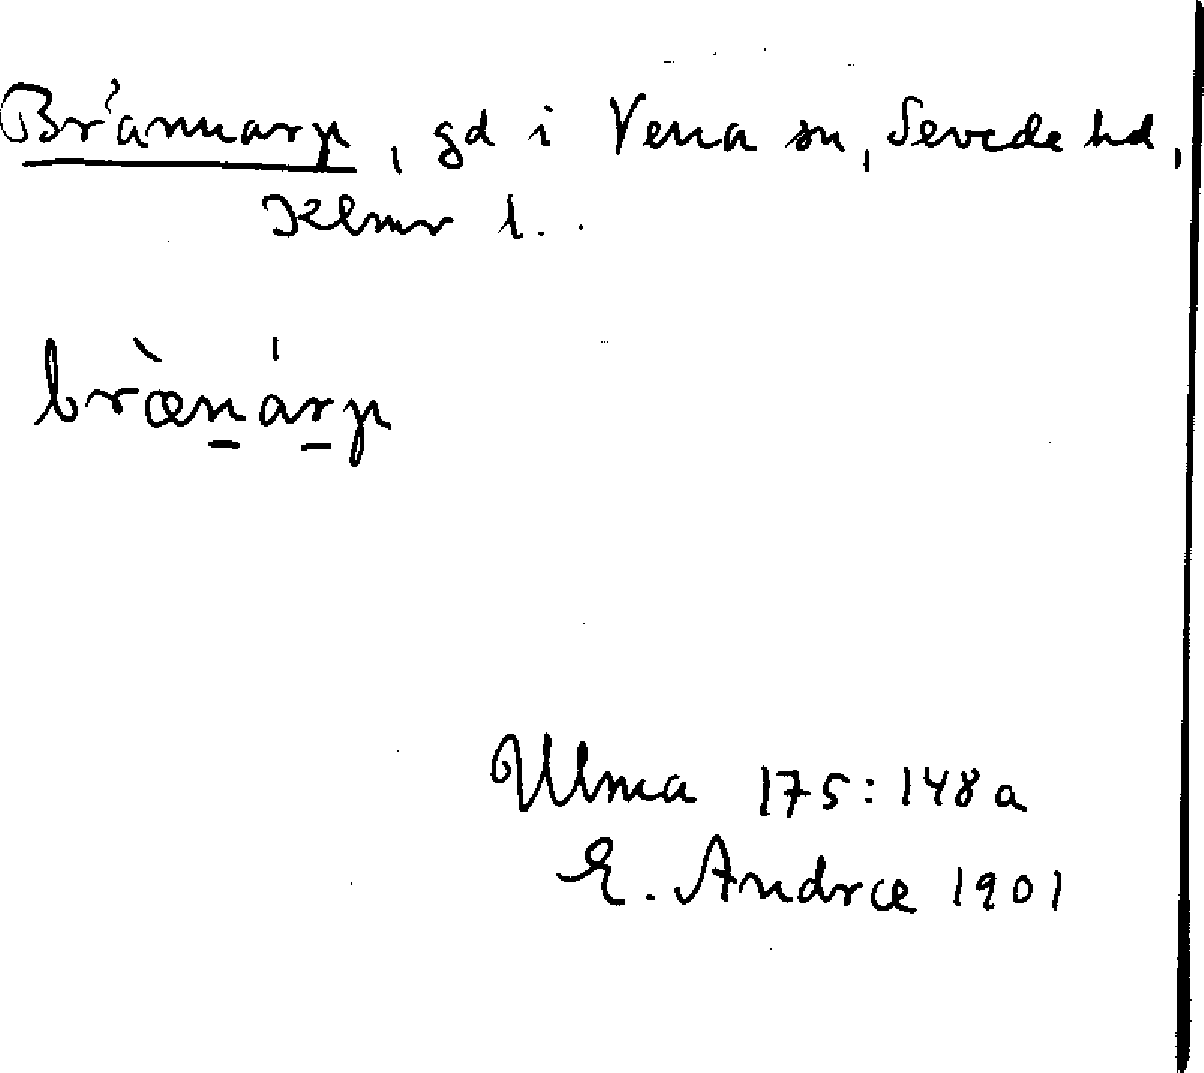 Brännarp, gd i Vena sn, Sevede hd,
Klmr l.
bræ̀ná̱rp
Ulma 175:148a
E. Andræ 1901